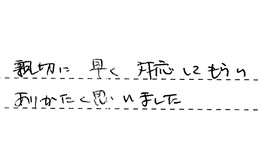 親切に 早く 対応してもらい
ありがたく思いました